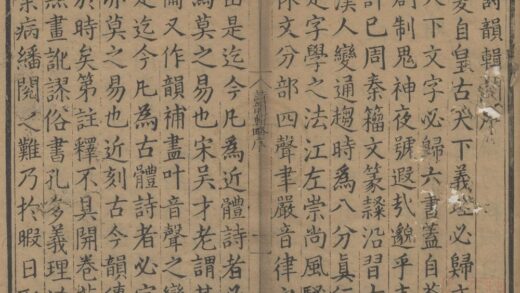 詩韻輯略序
自皇古天下義理必歸
天下文字必歸六書蓋自
創制鬼神夜號遐哉邈乎
計已周秦籀文篆隸沿習
漢人變通趨時為八分真行
定字學之法江左崇尚風騷
依文分部四聲聿嚴音律之
詩韻輯略序
由是迄今凡為近體詩者必
焉莫之易也宋吳才老謂其
備又作韻補盡叶音聲之變
是迄今凡為古體詩者必
亦莫之易也近刻古今韻傳
於時矣第註釋不具開卷茫
無畫訛謬俗書孔多義理
余病繙閱之難乃於暇日取